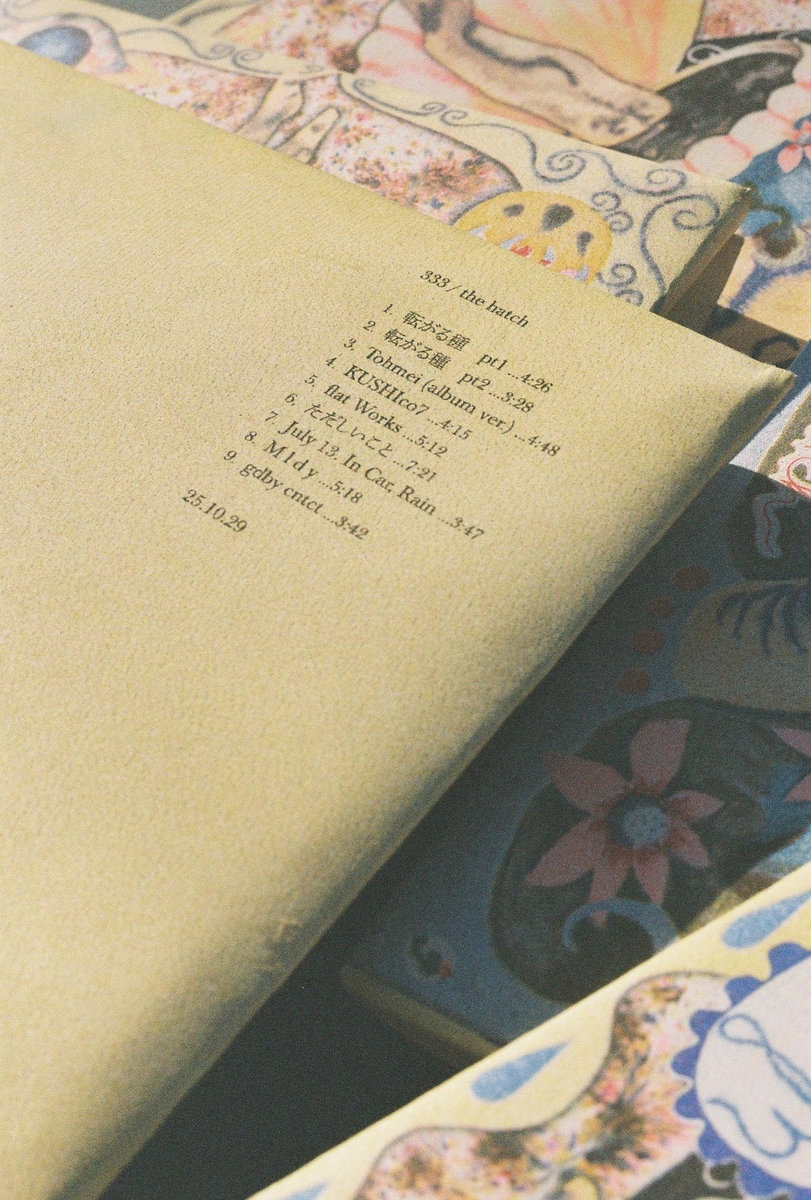 333 / the hatch
1. 転がる種 pt1 ...4:26
2. 転がる種 pt2 ...3:28
3. Tohmei (album ver.) ...4:48
4. KUSHIco7 ...4:15
5. flat Works ...5:12
6. ただしいこと ...7:21
7. July 13, In Car, Rain ...3:47
8. M l d y ...5:18
9. gdby cntct ...3:42
25.10.29